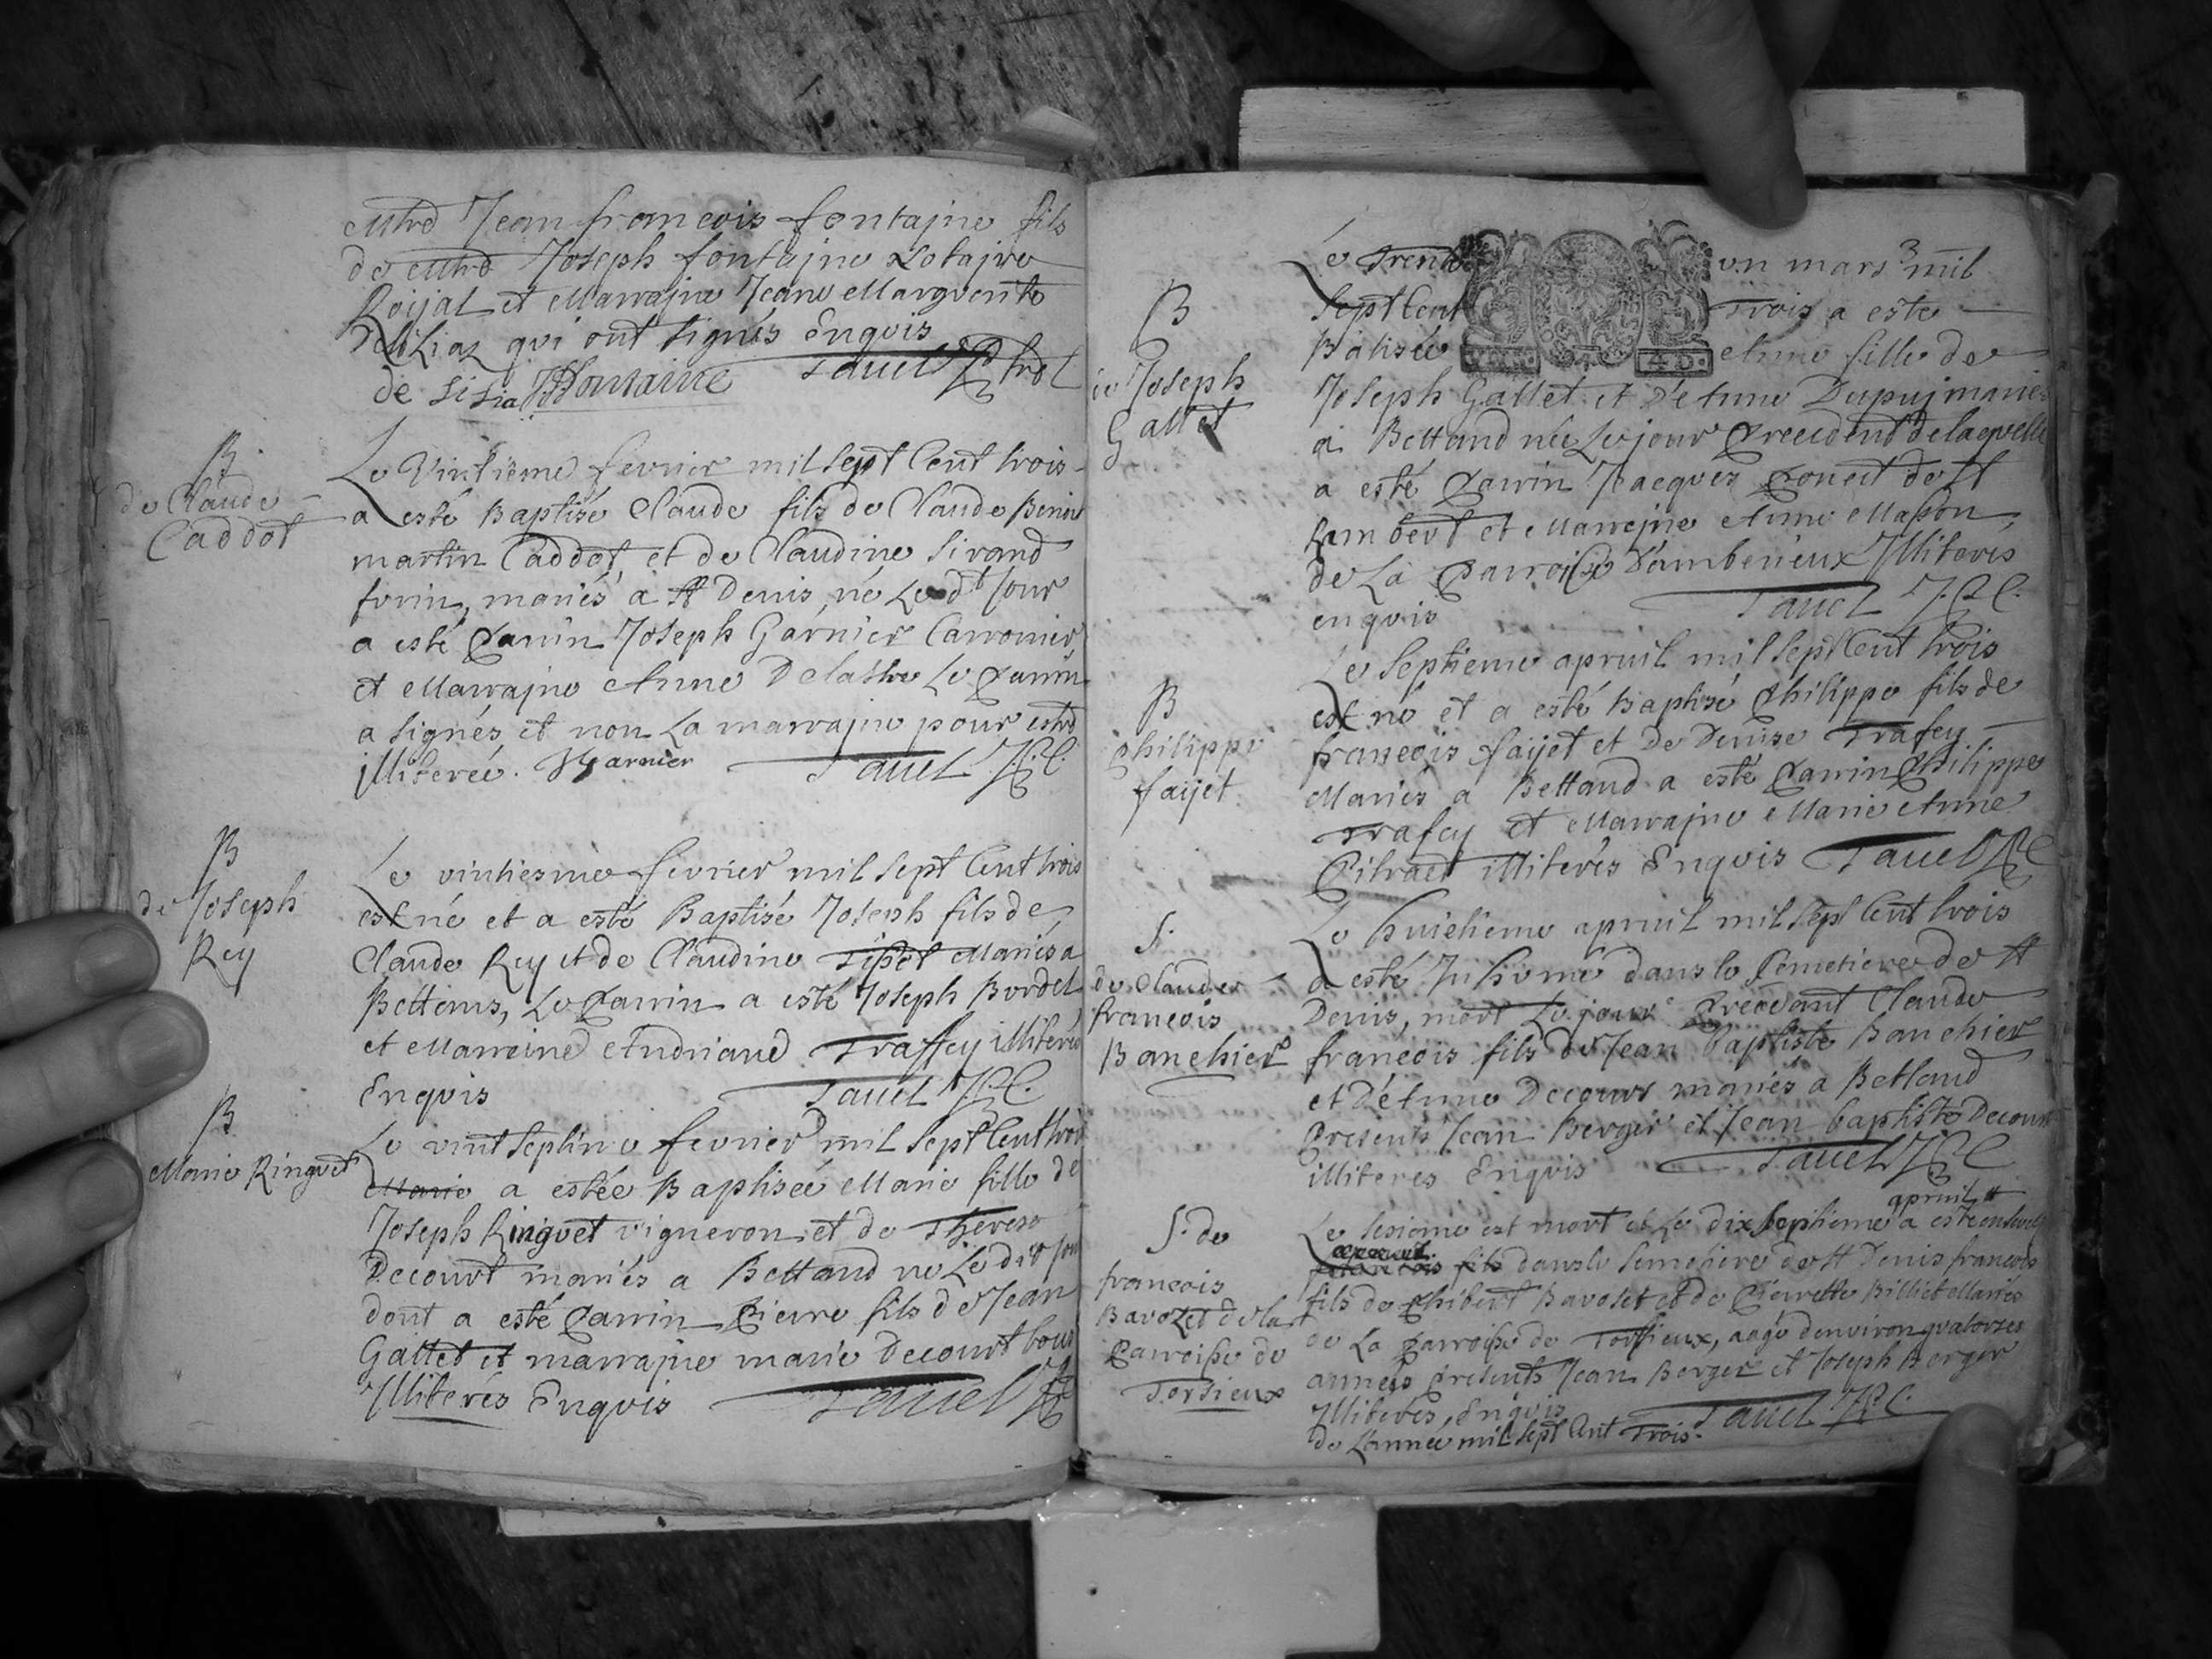 Mtre Jean francois fontajne fils
de Mtre Joseph fontajne Notajre
Roijal et Marrajne Jeane Marguerite
qui ont signés Enquis
de Jfontaine Tauel
B
de Claude
Caddot
Le Vintième fevrier mil sept Cent trois
a esté Baptisé Claude fils de Claude Benoit
martin Caddot, et de Claudine Sirand
marïés a St Denis, né Le dt Jour
a esté Parrin Joseph Garnier
et Marrajne Anne Delastre Le Parrin
a signés et non La marrajne pour estre
illiterée. JGarnier Tauel
B
de Joseph
Rey
Le vintiesme fevrier mil sept Cent trois
est né et a esté Baptisé Joseph fils de
Claude Rey et de Claudine Tisset Mariés a
Bettans, Le Parrin a esté Joseph Bordel
et Marreine Andriane Traffey illiterés
Enquis Tauel
B
Marie Ringuet
Le vint septinᵉ fevrier mil sept Cent trois
Marie a estée Baptisée Marie fille de
Joseph Ringuet vigneron et de Therese
Decourt mariés a Bettand ne Le dit jour
dont a esté Parrin Pierre fils de Jean
Gallet et marrajne marie Decourt tous
Illiterés Enquis Tauel
B
de Joseph
Gallet
Le Trente un mars mil
sept Cent Trois a este
Batisée Anne fille de
Joseph Gallet et d'Anne Dupuj mariés
a Bettand née Le jour Precedent de laquelle
a esté Parrin Jacques Poncet de St
Lambert et Marrejne Anne Masson
de La Parroisse d'amberieux Illiterés
enquis Tauel
B
philippe
faijet
Le septieme apruil mil sept Cent trois
est né et a esté Baptisé Philippe fils de
francois faijet et De Denise Trafey
Mariés a Bettand a esté Parrin Philippe
Trafey et Marrajne Marie Anne
illiterés Enquis Tauel
S.
de Claude
francois
Banchier
Le huictieme apruil mil sept Cent trois
a esté Inhumé dans le Cemetiere de St
Denis, mort Le jour Precedant Claude
francois fils de Jean baptiste Banchier
et d'Anne Decour mariés a Bettand
Presents Jean Berger et Jean baptiste Decour
illiteres Enquis Tauel
S. de
francois
Bavozet de la
Parroisse de
Torsieux
Le sesieme est mort et Le dix septieme apruil a esté enseveli
fils dans le Semetiere de St Denis francois
fils de Phibert Bavoset et de Pierrette Billiet Mariés
de La Parroisse de Torsieux, aagé d'environ quatorzes
années Presents Jean Berger et Joseph Berger
Illiterés, Enquis Tauel
de L'annee mil sept Cent Trois.